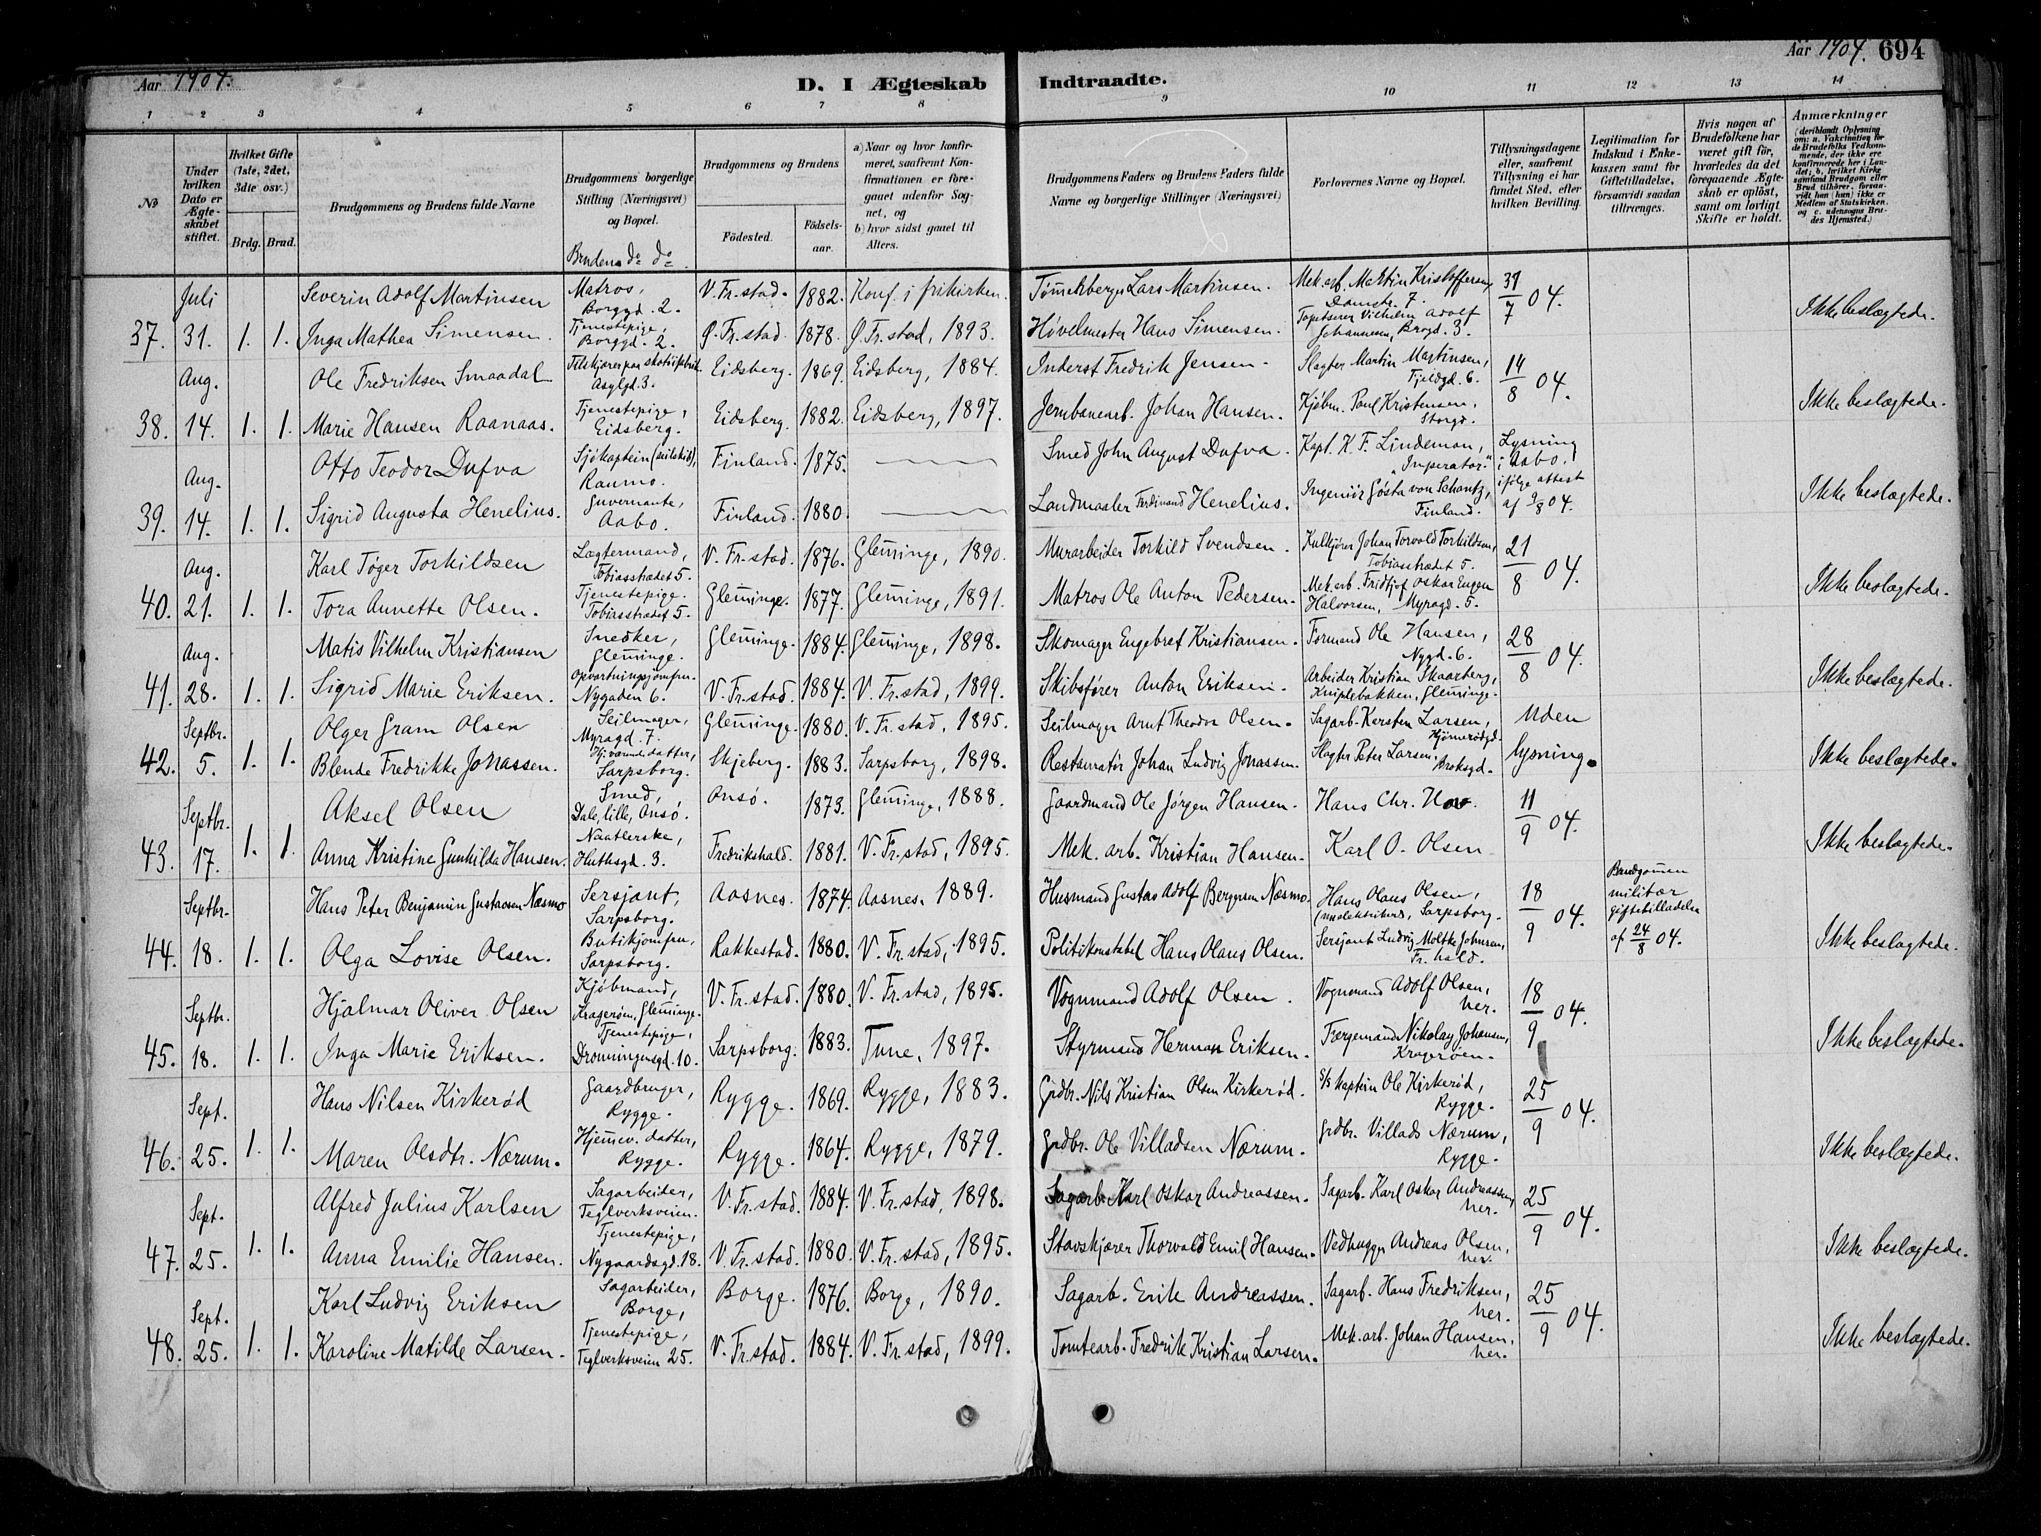 Aar 1904.
D. I Ægteskab Indtraadte.
Aar 1904. 694
1 2 3 4 5 6 7 8 9 10 11 12 13 14
No
Under hvilken Dato er Ægteskabet stiftet.
Hvilket Gifte (1ste, 2det, 3die osv.)
Brdg. Brud.
Brudgommens og Brudens fulde Navne
Brudgommens borgerlige Stilling (Næringsvei) og Bopæl.
Brudens do do.
Brudgommens og Brudens
Fødested. Fødselsaar.
a) Naar og hvor konfirmeret, saafremt Konfirmationen er foregaaet udenfor Sognet, og
b) hvor sidst gaaet til Alters.
Brudgommens Faders og Brudens Faders fulde Navne og borgerlige Stillinger (Næringsvei)
Forlovernes Navne og Bopæl.
Tillysningsdagene eller, saafremt Tillysning ei har fundet Sted, efter hvilken Bevilling.
Legitimation for Indskud i Enkekassen samt for Giftetilladelse, forsaavidt saadan tiltrænges.
Hvis nogen af Brudefolkene har været gift før, hvorledes da det foregaaende Ægteskab er opløst, samt om lovligt Skifte er holdt.
Anmærkninger
(deriblandt Oplysning om: a. Vaccination for de Brudefolks Vedkommende, der ikke ere konfirmerede her i Landet; b. hvilket Kirkesamfund Brudgom eller Brud tilhører, forsaavidt han (hun) ikke er Medlem af Statskirken, og c. udensogns Brudes Hjemsted.)
Juli Severin Adolf Martinsen Matros, Borggd. 2. V. Fr.stad. 1882. Konf. i frikirken. Lars Martinsen. Mek. arb. Martin Kristoffersen, Damstr. 7. 31/7 04.
37. 31. 1. 1. Inga Mathea Simensen. Tjenestepige, Borggd. 2. Ø. Fr.stad. 1878. Ø. Fr.stad, 1893. Høvelmester Hans Simensen. Vilhelm Adolf Johannesen, Brogd. 3. Ikke beslægtede.
Aug. Ole Fredriksen Smaadal Asylgd. 3. Eidsberg. 1869. Eidsberg, 1884. Inderst Fredrik Jensen. Slagter Martin Martinsen, Fjeldgd. 6. 14/8 04.
38. 14. 1. 1. Marie Hansen Raanaas. Tjenestepige, Eidsberg. Eidsberg. 1882. Eidsberg, 1897. Jernbanearb. Johan Hansen. Kjøbm. Paul Kristensen, Storgd. Ikke beslægtede.
Aug. Otto Teodor Dufva Sjøkaptein (seilskib), Raumo. Finland. 1875. Smed John August Dufva. Kapt. K. F. Lindeman, "Imperator." Lysning i Aabo
39. 14. 1. 1. Sigrid Augusta Henelius. Guvernante, Aabo. Finland. 1880. Landmaaler Ferdinand Henelius. Ingeniør Gøsta von Schantz, Finland. ifølge attest af 9/8 04. Ikke beslægtede.
Aug. Karl Tøger Torkildsen Lagtermand, Tobiasstrædet 5. V. Fr.stad. 1876. Glemminge, 1890. Murarbeider Torkild Svendsen. Kulkjører Johan Torvald Torkildsen, Tobiasstrædet 5. 21/8 04.
40. 21. 1. 1. Tora Annette Olsen. Tjenestepige. Tobiasstrædet 5. Glemminge. 1877. Glemminge, 1891. Matros Ole Anton Pedersen. Mek. arb. Fridtjof Oskar Eugen Halvorsen, Myragd. 5. Ikke beslægtede.
Aug. Matis Vilhelm Kristiansen Snedker, Glemminge. Glemminge. 1884. Glemminge, 1898. Skomager Engebret Kristiansen. Formand Ole Hansen, Nygd. 6. 28/8 04.
41. 28. 1. 1. Sigrid Marie Eriksen. Opvartningsjomfru. Nygaden 6. V. Fr.stad. 1884. V. Fr.stad, 1899. Skibsfører Anton Eriksen. Arbeider Kristian Skaarberg, Kniplebakken, Glemminge. Ikke beslægtede.
Septbr. Olger Gram Olsen Seilmager, Myragd. 7. Glemminge. 1880. V. Fr.stad, 1895. Seilmager Arnt Theodor Olsen. Sagarb. Kersten Larsen, Uden
42. 5. 1. 1. Blende Fredrikke Jonassen. Hjemmev. datter, Sarpsborg. Skjeberg. 1883. Sarpsborg, 1898. Restauratør Johan Ludvig Jonassen. Slagter Peter Larsen, lysning. Ikke beslægtede.
Septbr. Aksel Olsen Smed, Dale, lille, Onsø. Onsø. 1873. Glemminge, 1888. Gaardmand Ole Jørgen Hansen. Hans Chr. 11/9 04.
43. 17. 1. 1. Anna Kristine Gunhilda Hansen. Naatlerske, 3. Fredrikshald. 1881. V. Fr.stad, 1895. Mek. arb. Kristian Hansen. Karl O. Olsen Ikke beslægtede.
Septbr. Hans Peter Benjamin Gustavsen Næsmo Sersjant, Sarpsborg. Aasnes. 1874. Aasnes. 1889. Husmand Gustav Adolf Bergersen Næsmo. Hans Olaus Olsen, Sarpsborg. 18/9 04. Brudgommen militær giftetilladelse
44. 18. 1. 1. Olga Lovise Olsen. Butikjomfru, Sarpsborg. Rakkestad. 1880. V. Fr.stad, 1895. Politikonstabel Hans Olaus Olsen. Sersjant Ludvig Moltke Johnsen, Fr.hald. af 24/8 04. Ikke beslægtede.
Septbr. Hjalmar Oliver Olsen Kjøbmand, Kragerøen, Glemminge. V. Fr.stad. 1880. V. Fr.stad, 1895. Vognmand Adolf Olsen. Vognmand Adolf Olsen, her. 18/9 04.
45. 18. 1. 1. Inga Marie Eriksen. Tjenestepige, Dronningensgd. 10. Sarpsborg. 1883. Tune, 1897. Styrmand Herman Eriksen. Færgemand Nikolay Johansen, Kragerøen. Ikke beslægtede.
Sept. Hans Nilsen Kirkerød Gaardbruger, Rygge. Rygge. 1869. Rygge, 1883. Grdbr. Nils Kristian Olsen Kirkerød. S/S kaptein Ole Kirkerød, Rygge. 25/9 04.
46. 25. 1. 1. Maren Olsdtr. Nærum. Hjemmev. datter, Rygge. Rygge. 1864. Rygge, 1879. Grdbr. Ole Villadsen Nærum. Grdbr. Villads Nærum, Rygge. Ikke beslægtede.
Sept. Alfred Julius Karlsen Sagarbeider, Teglverksveien. V. Fr.stad. 1884. V. Fr.stad, 1898. Sagarb. Karl Oskar Andreassen. Sagarb. Karl Oskar Andreassen, her. 25/9 04.
47. 25. 1. 1. Anna Emilie Hansen. Tjenestepige, Nygaardsgd. 18. V. Fr.stad. 1880. V. Fr.stad, 1895. Stavskjærer Thorvald Emil Hansen. Vedhugger Andreas Olsen, her. Ikke beslægtede.
Sept. Karl Ludvig Eriksen Sagarbeider, Borge, Borge. 1876. Borge, 1890. Sagarb. Erik Andreassen. Sagarb. Hans Fredriksen, her. 25/9 04.
48. 25. 1. 1. Karoline Matilde Larsen. Tjenestepige, Teglverksveien 25. V. Fr.stad. 1884. V. Fr.stad, 1899. Tomtearb. Fredrik Kristian Larsen. Mek. arb. Johan Hansen, her. Ikke beslægtede.